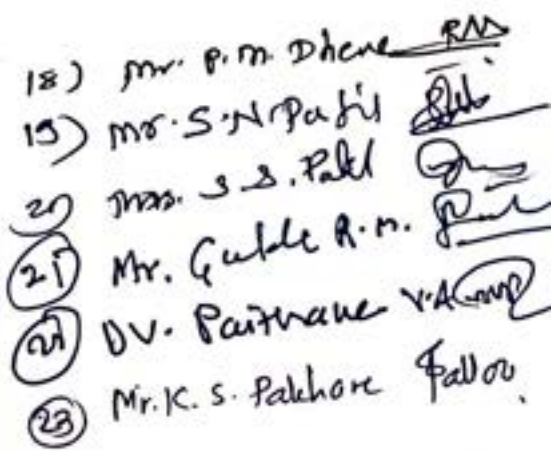 18) Mr. P. M. Dhene
19) Mr. S. N. Patil
20) Mrs. S. S. Patil
21) Mr. R. M.
22) DV. Paithane V. A
23) Mr. K. S. Pakhore